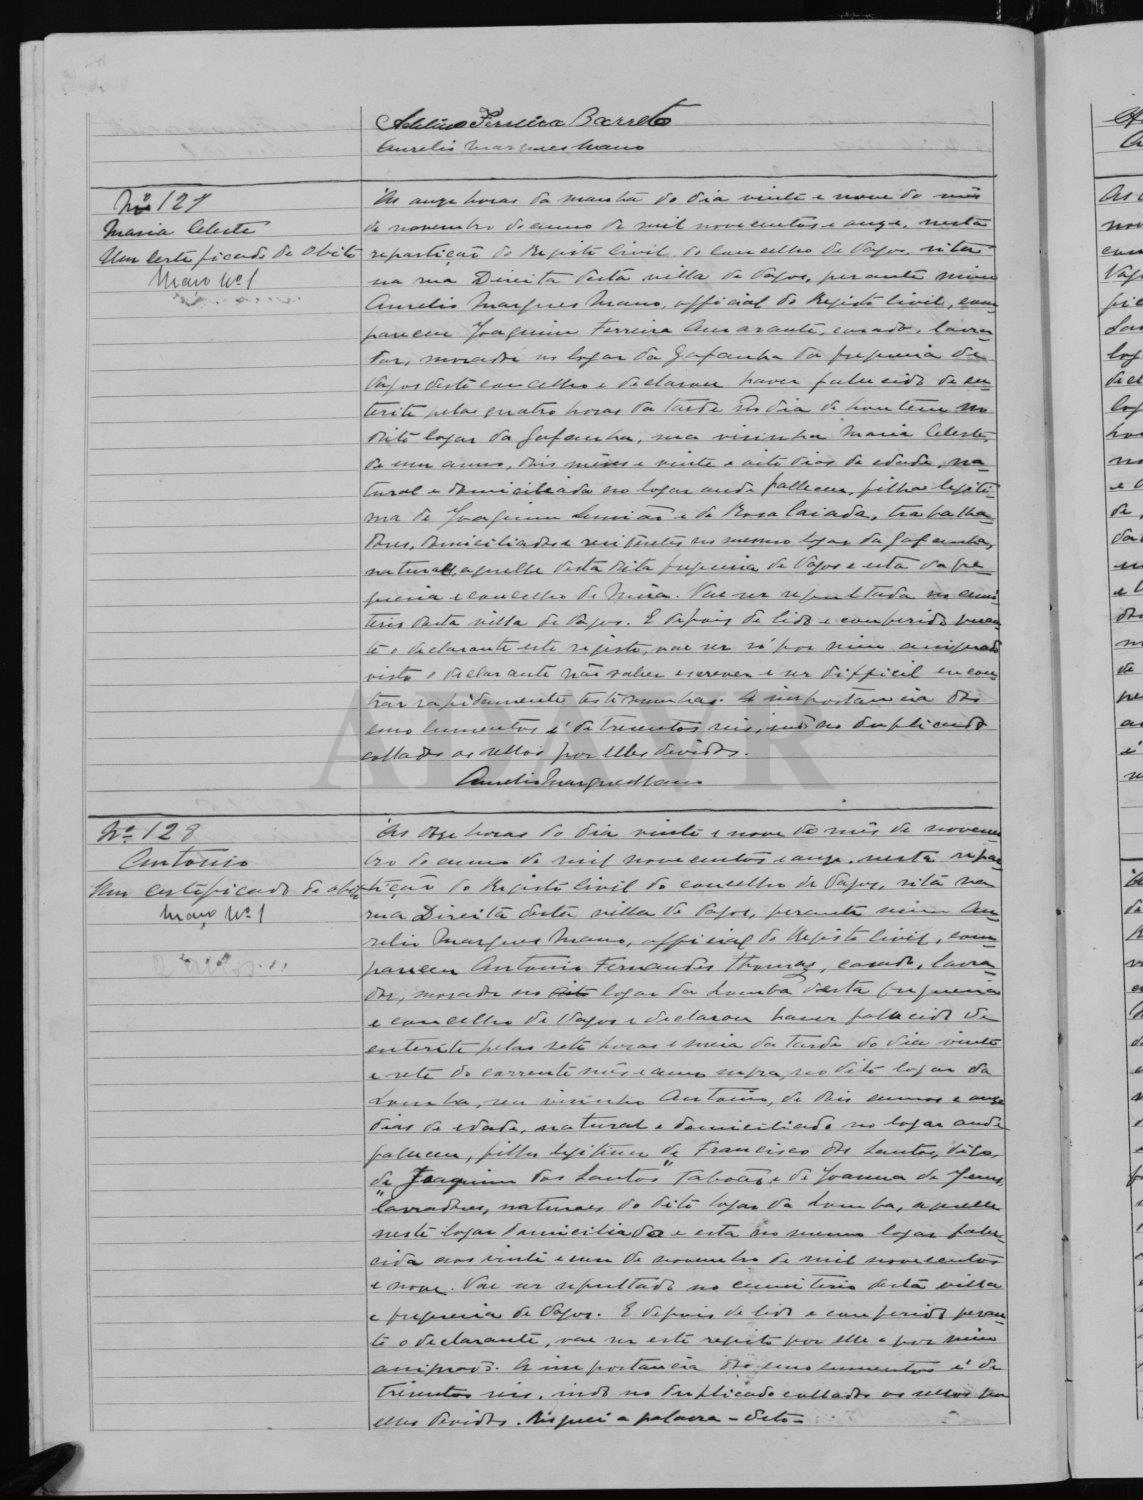 Adelino Ferreira Barreto
Aurelio Marques Mano
Nº 127
Maria Celeste
Um certificado de obito
Maço Nº 1
Ás onze horas da manhã do dia vinte e nove do mês
de novembro do anno de mil novecentos e onze, nesta
repartição do Registo Civil do concelho de Vagos, sita
na rua Direita desta villa de Vagos, perante mim
Aurelio Marques Mano, official do Registo Civil, com-
pareceu Joaquim Ferreira Amarante, casado, lavra-
dor, morador no logar da Gafanha da freguesia de
Vagos deste concelho e declarou haver fallecido de en-
terite pelas quatro horas da tarde do dia de hontem no
dito logar da Gafanha, sua visinha Maria Celeste,
de um anno, dois mêses e vinte e oito dias de edade, na-
tural e domiciliada no logar onde falleceu, filha legiti-
ma de Joaquim e de Rosa Caiada, trabalha-
dores, domiciliados e residentes no mesmo logar da Gafanha,
naturaes, aquelle desta dita freguesia de Vagos e esta da fre-
guesia e concelho de Mira. Vae ser sepultada no cemi-
terio desta villa de Vagos. E depois de lido e conferido peran-
te o declarante este registo, vae ser só por mim assignado
visto o declarante não saber escrever e ser difficil encon-
trar rapidamente testemunhas. A importancia dos
emolumentos é de trezentos reis, indo no duplicado
collados os sellos por elles devidos.
Aurelio Marques Mano
ADAVR
Nº 128
Antonio
Um certificado de obito
Maço Nº 1
Ás onze horas do dia vinte e nove do mês de novem-
bro do anno de mil novecentos e onze, nesta repar-
tição do Registo Civil do concelho de Vagos, sita na
rua Direita desta villa de Vagos, perante mim Au-
relio Marques Mano, official do Registo Civil, com-
pareceu Antonio Fernandes Thomaz, casado, lavra-
dor, morador no dito logar da Lomba desta freguesia
e concelho de Vagos e declarou haver fallecido de
enterite pelas sete horas e meia da tarde do dia vinte
e sete do corrente mês e anno supra, no dito logar da
Lomba, seu visinho Antonio, de dois annos e onze
dias de edade, natural e domiciliado no logar onde
falleceu, filho legitimo de Francisco dos Santos, digo,
de Joaquim dos Santos "Taboão" e de Joanna de Jesus,
lavradores, naturaes do dito logar da Lomba, aquelle
neste logar domiciliado e esta no mesmo logar falle-
cida aos vinte e um de novembro de mil novecentos
e nove. Vae ser sepultado no cemiterio desta villa
e freguesia de Vagos. E depois de lido e conferido peran-
te o declarante, vae ser este registo por elle e por mim
assignado. A importancia dos emolumentos é de
trezentos reis, indo no duplicado collados os sellos por
elles devidos. Risquei a palavra - dito -